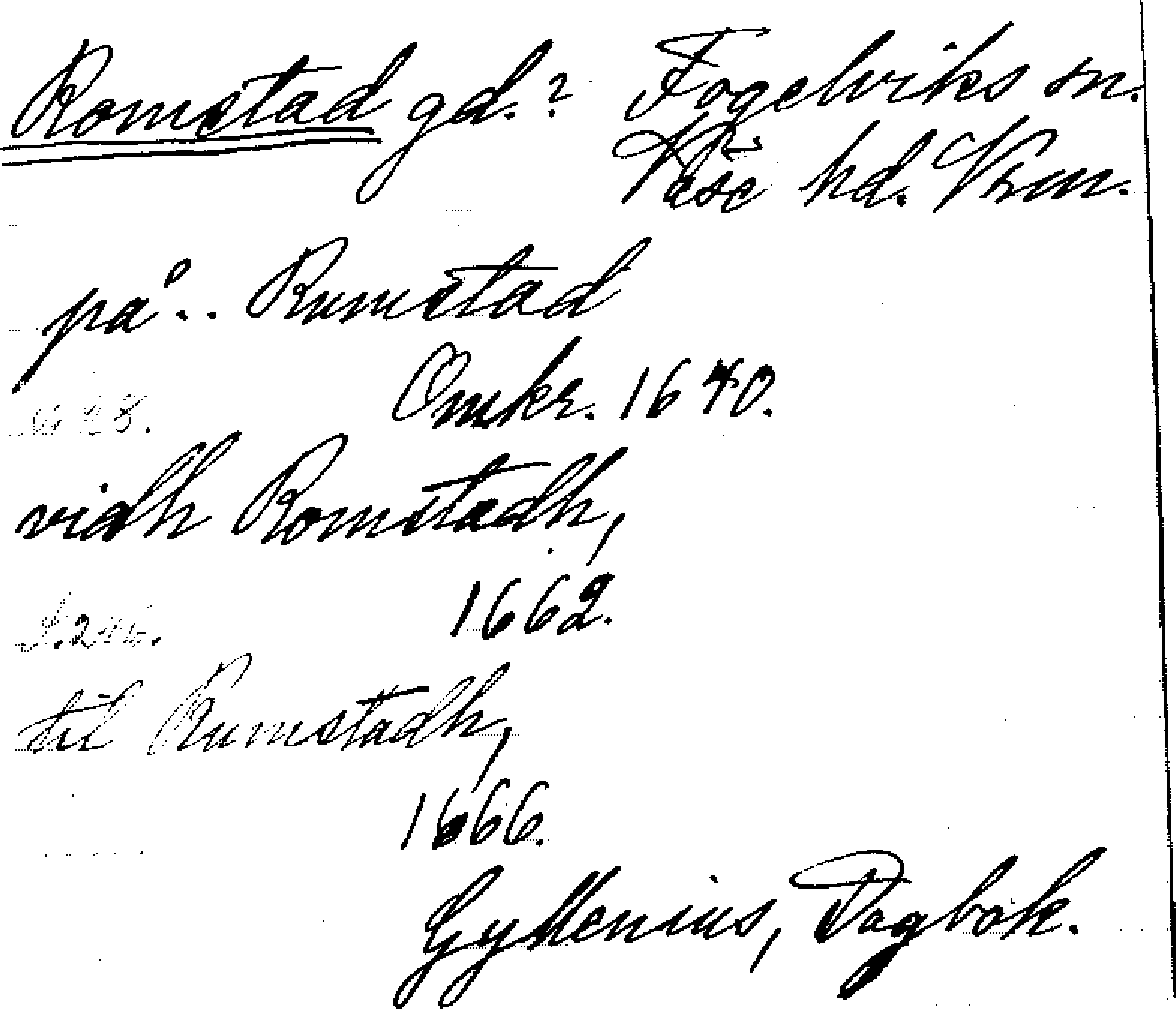 Romstad gd.? Fogelviks sn.
Väse hd. Vrm.
på.. Rumstad
Omkr. 1640.
vidh Romstadh,
1662.
til Rumstadh,
1666.
Gyllenius, Dagbok.